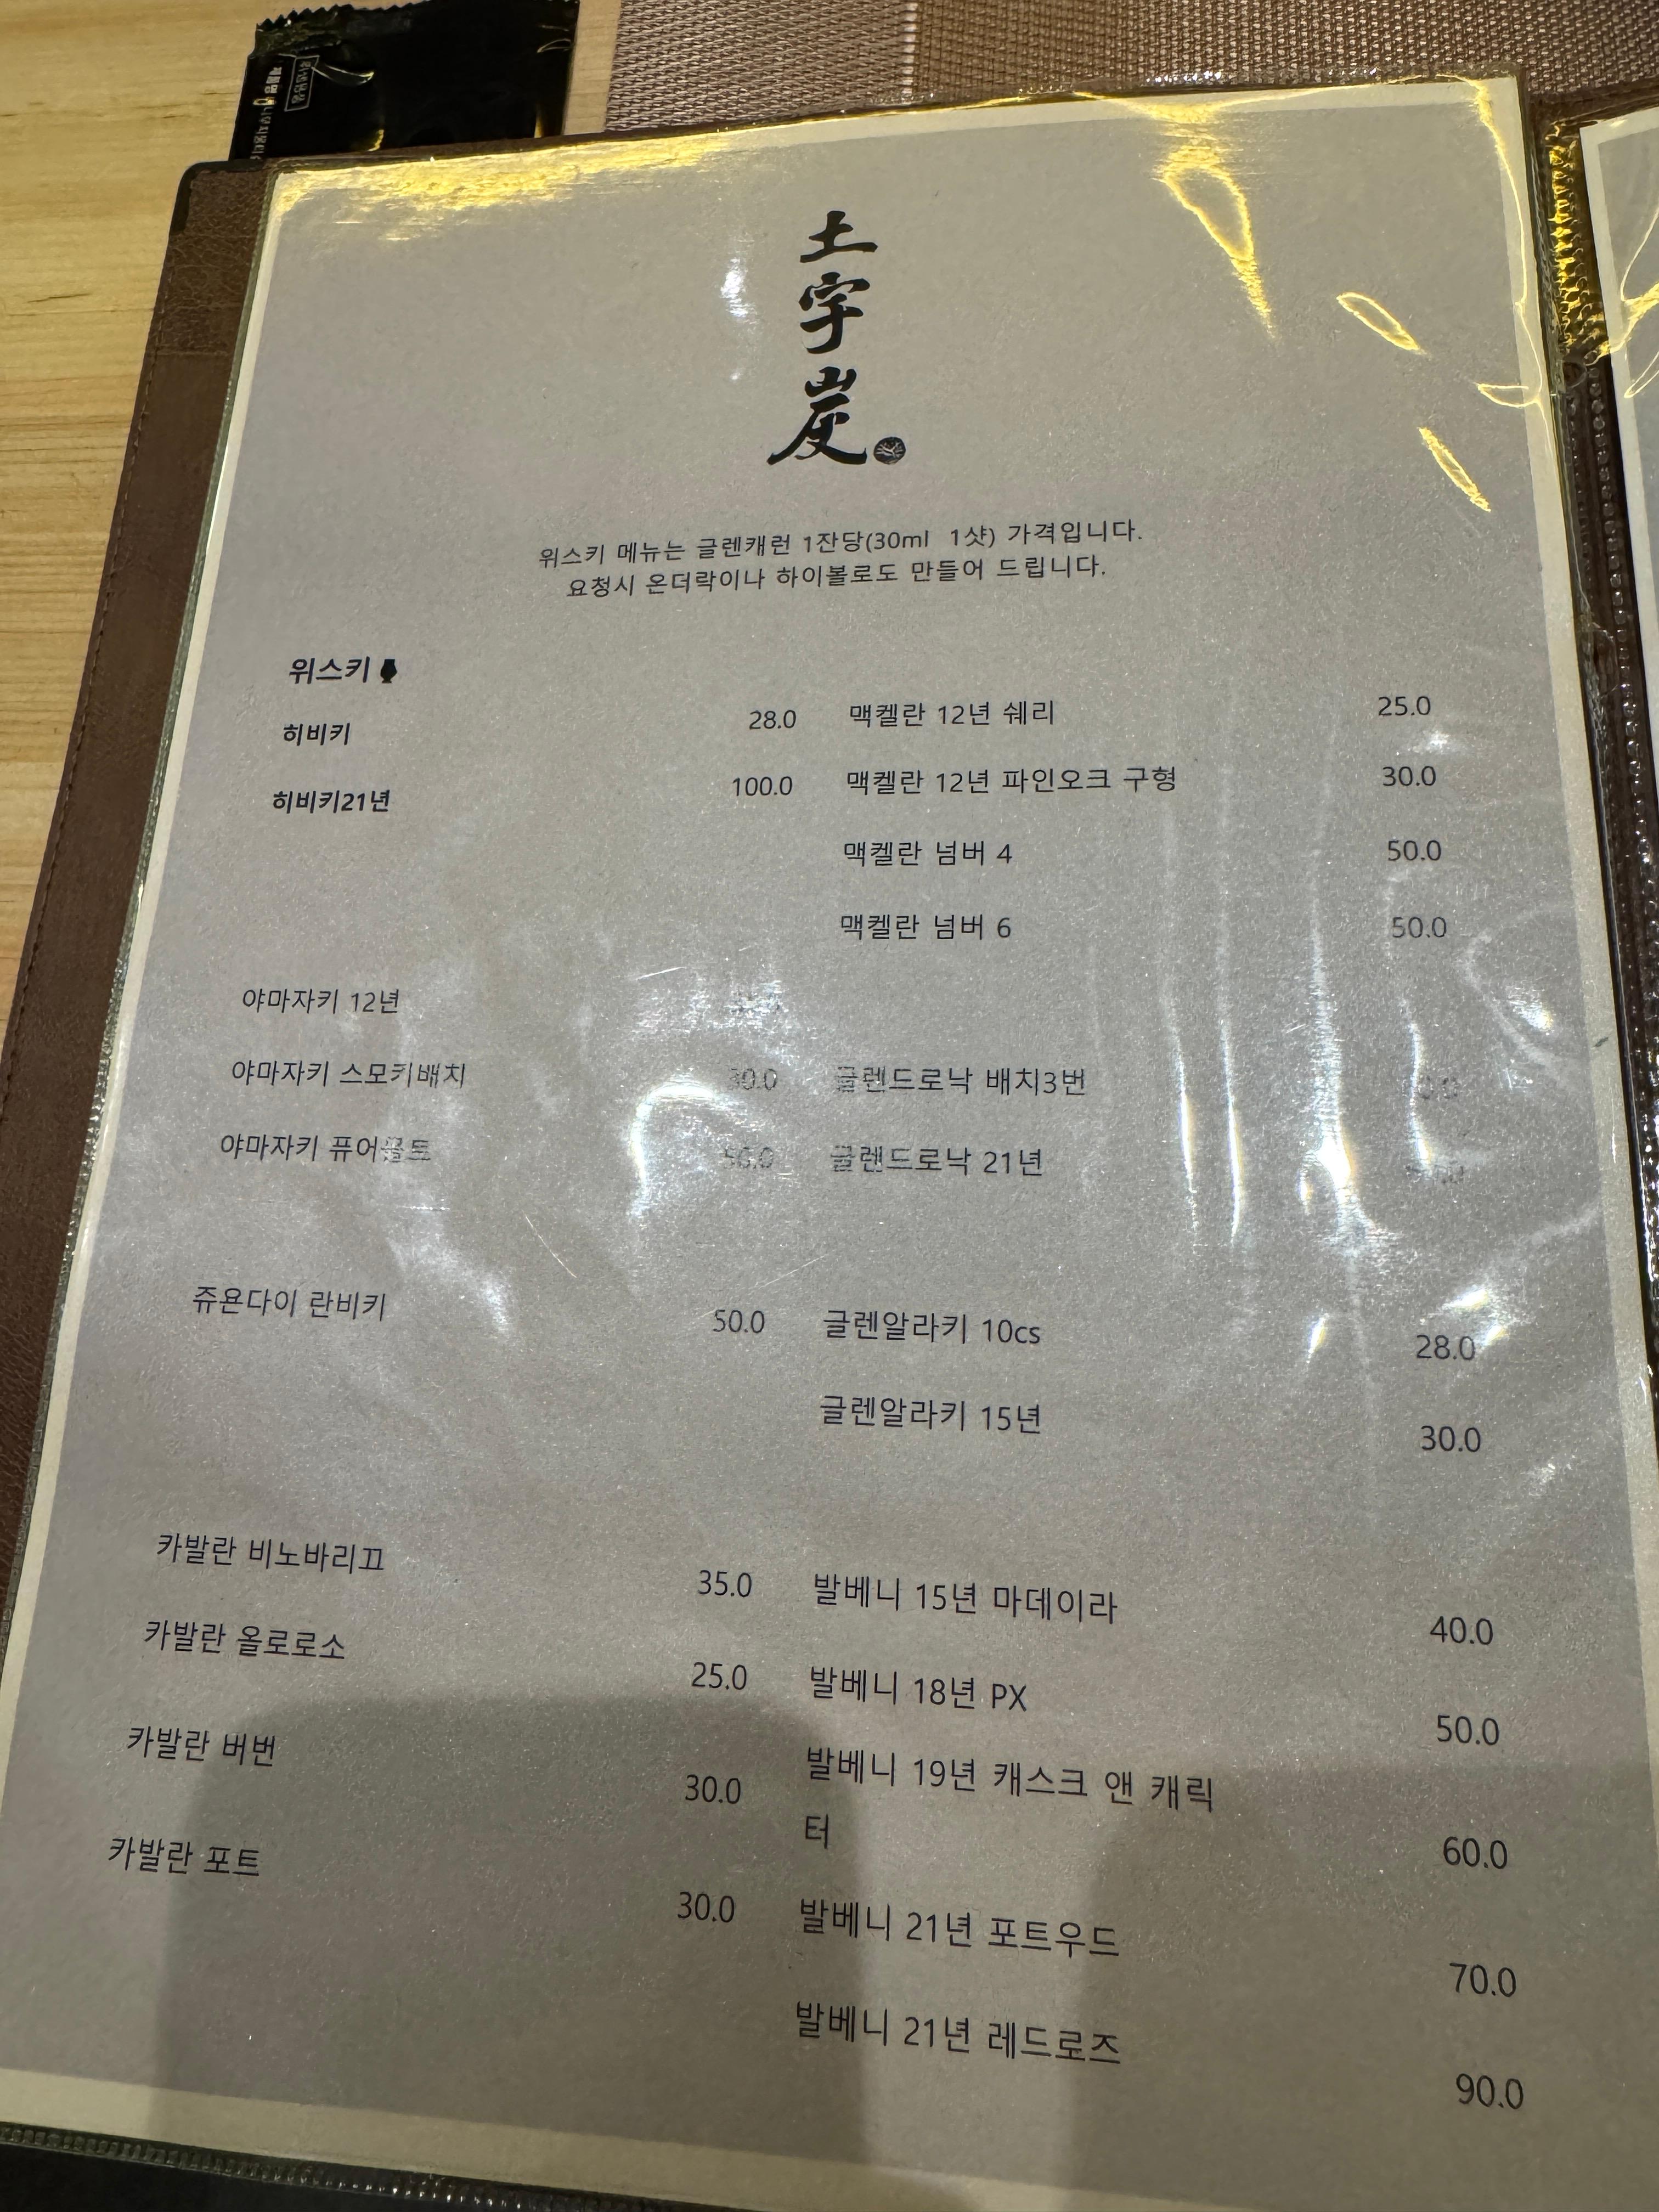 위생용품
土
字
炭
위스키 메뉴는 글렌캐런 1잔당(30ml 1샷) 가격입니다.
요청시 온더락이나 하이볼로도 만들어 드립니다.
위스키
히비키 28.0
히비키21년 100.0
야마자키 12년
야마자키 스모키배치 30.0
야마자키 퓨어몰트 50.0
쥬욘다이 란비키 50.0
카발란 비노바리끄 35.0
카발란 올로로소 25.0
카발란 버번 30.0
카발란 포트 30.0
맥켈란 12년 쉐리 25.0
맥켈란 12년 파인오크 구형 30.0
맥켈란 넘버 4 50.0
맥켈란 넘버 6 50.0
글렌드로낙 배치3번
글렌드로낙 21년
글렌알라키 10cs 28.0
글렌알라키 15년 30.0
발베니 15년 마데이라 40.0
발베니 18년 PX 50.0
발베니 19년 캐스크 앤 캐릭
터 60.0
발베니 21년 포트우드 70.0
발베니 21년 레드로즈 90.0